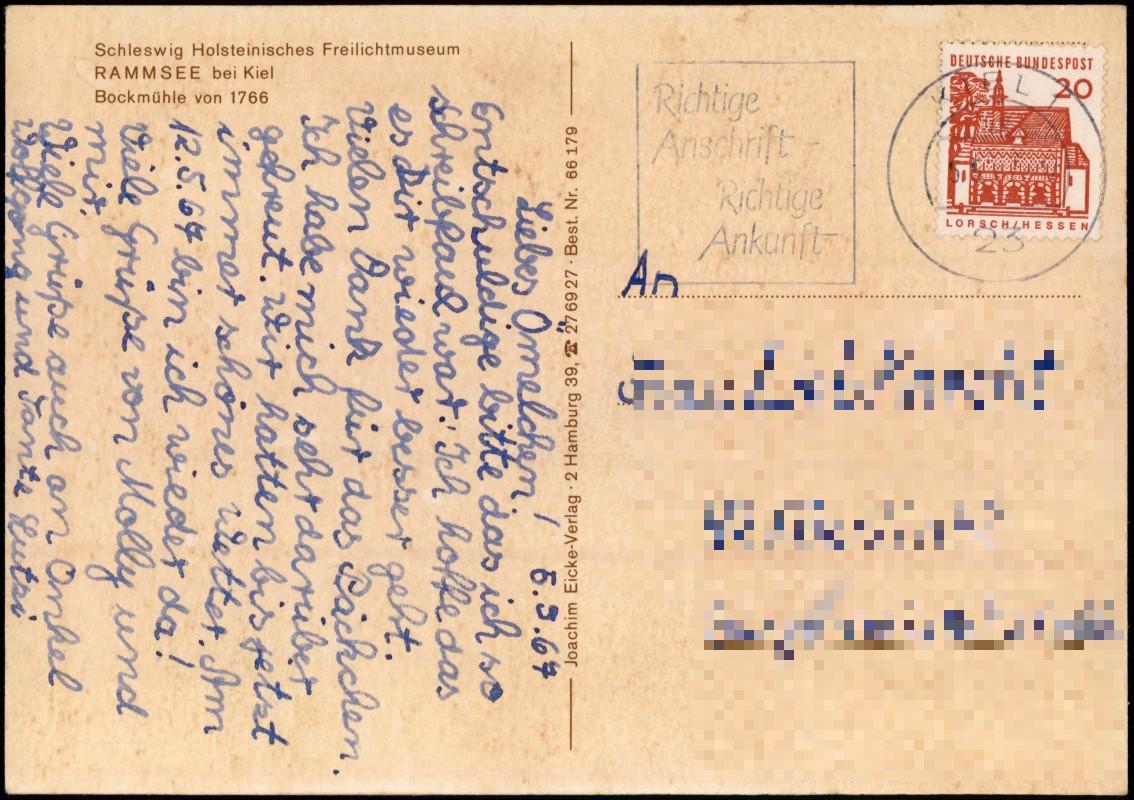 Schleswig Holsteinisches Freilichtmuseum
RAMMSEE bei Kiel
Bockmühle von 1766
Liebes Ömelchen! 6.9.67
Entschuldige bitte das ich so
schreibfaul war. Ich hoffe das
es Dir wieder besser geht.
Vielen Dank für das Päckchen.
Ich habe mich sehr darüber
gefreut. Wir hatten bis jetzt
immer schönes Wetter. Am
12.5.67 bin ich wieder da!
Viele Grüße von Molly und
mir.
Viele Grüße auch an Onkel
Wolfgang und Tante Lutzi
Joachim Eicke-Verlag · 2 Hamburg 39, ☎ 276927 · Best. Nr. 66 179
Richtige
Anschrift -
Richtige
Ankunft
DEUTSCHE BUNDESPOST
20
LORSCH/HESSEN
KIEL 1
23
An